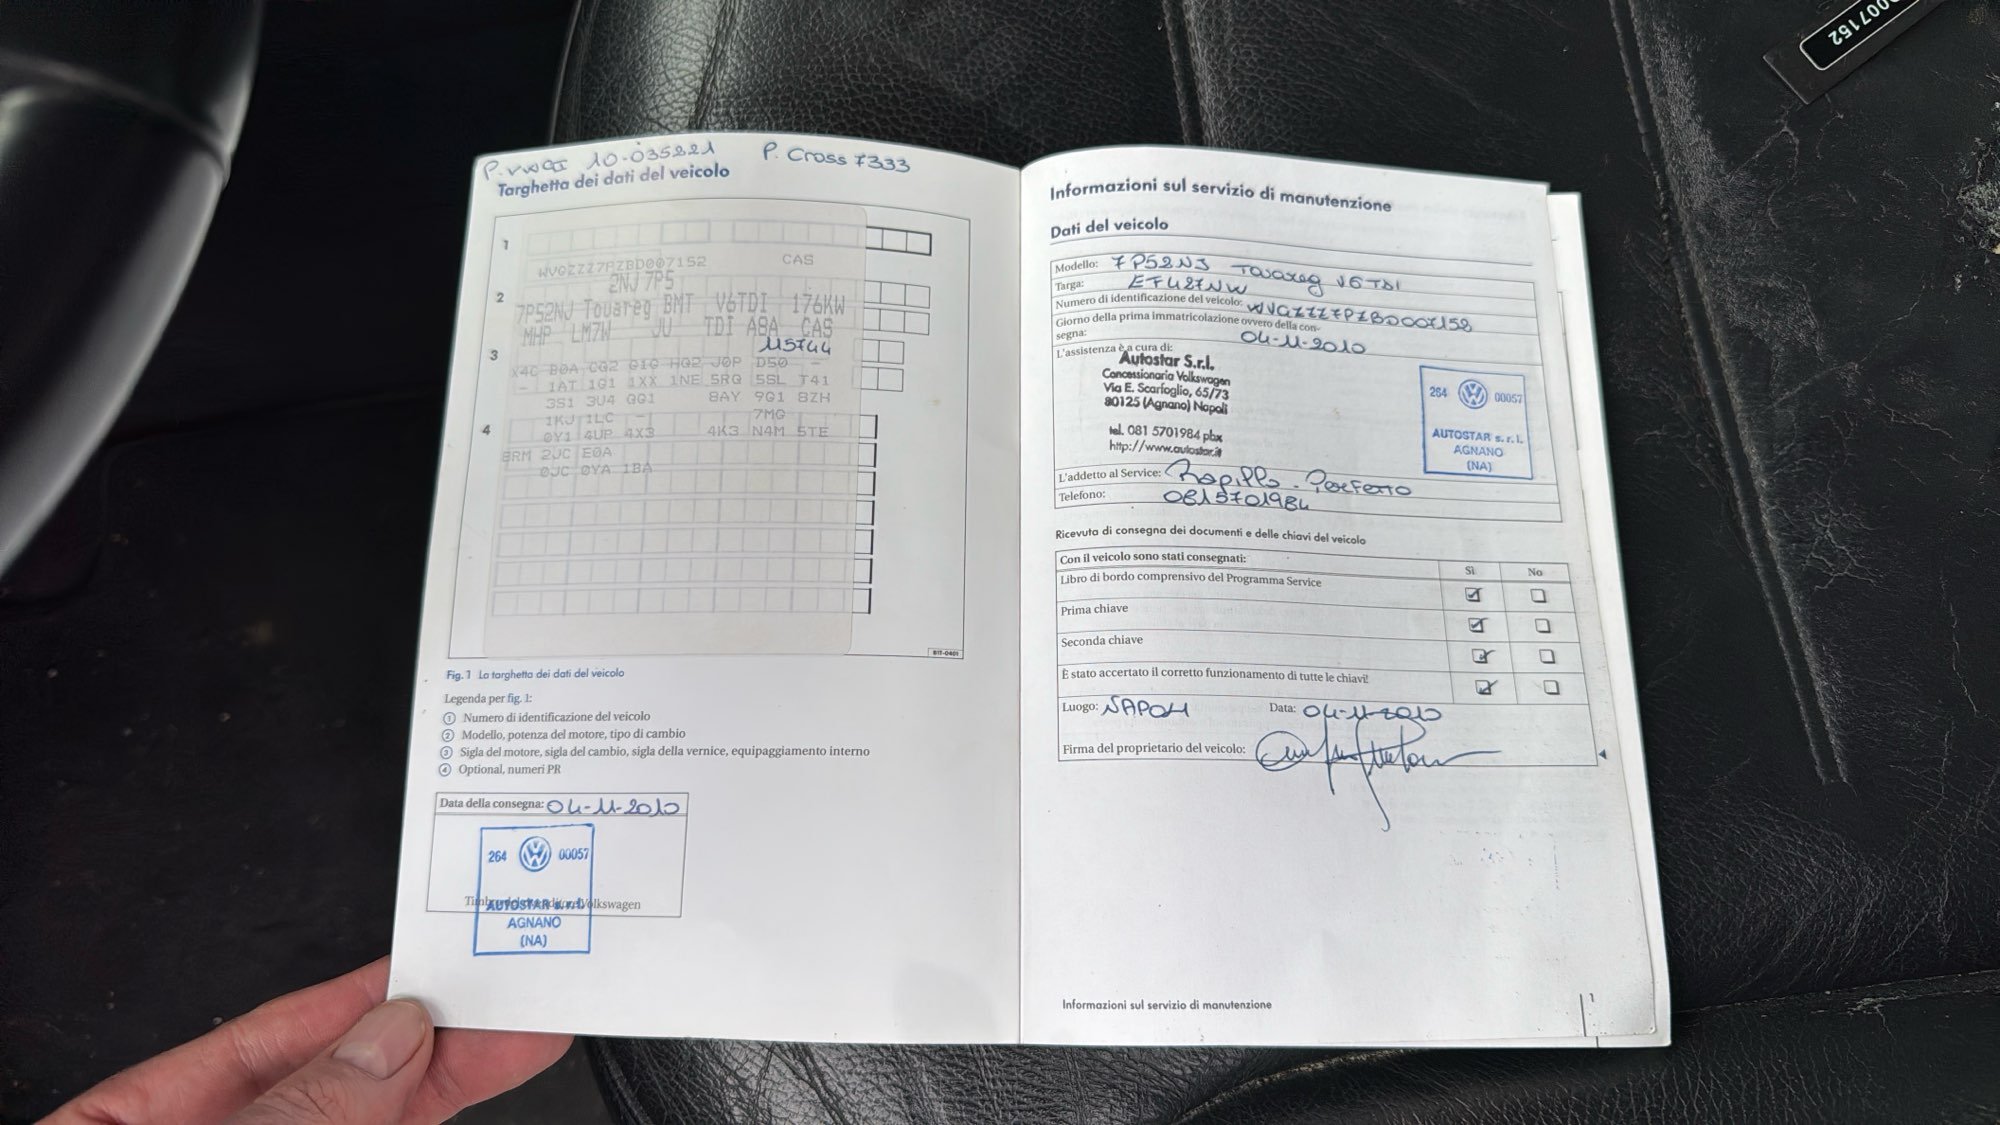 D007152
10-035221 P. Cross 7333
Targhetta dei dati del veicolo
1
WVGZZZ7PZBD007152 CAS
2NJ 7P5
2
7P52NJ Touareg BMT V6TDI 176KW
MHP LM7W JU TDI A8A CAS
115744
3
X4C B0A CG2 G1G HQ2 J0P D50 -
- 1AT 1G1 1XX 1NE 5RQ 5SL T41
3S1 3U4 QG1 8AY 9G1 8ZH
1KJ 1LC - 7MG
4
0Y1 4UP 4X3 4K3 N4M 5TE
8RM 2JC E0A
0JC 0YA 1BA
B1T-0401
Fig. 1 La targhetta dei dati del veicolo
Legenda per fig. 1:
1 Numero di identificazione del veicolo
2 Modello, potenza del motore, tipo di cambio
3 Sigla del motore, sigla del cambio, sigla della vernice, equipaggiamento interno
4 Optional, numeri PR
Data della consegna: 04-11-2010
264 00057
Volkswagen
AUTOSTAR s.r.l.
AGNANO
(NA)
Informazioni sul servizio di manutenzione
Dati del veicolo
Modello: 7P52NJ Touareg V6 TDI
Targa: EF427NW
Numero di identificazione del veicolo: WVGZZZ7PZBD007152
Giorno della prima immatricolazione ovvero della con-
segna: 04-11-2010
L'assistenza è a cura di:
Autostar S.r.l.
Concessionaria Volkswagen
Via E. Scarfoglio, 65/73
80125 (Agnano) Napoli
tel. 081 5701984 pbx
http://www.autostar.it
264 00057
AUTOSTAR s.r.l.
AGNANO
(NA)
L'addetto al Service: Rapillo - Perfetto
Telefono: 0815701984
Ricevuta di consegna dei documenti e delle chiavi del veicolo
Con il veicolo sono stati consegnati: Sì No
Libro di bordo comprensivo del Programma Service
Prima chiave
Seconda chiave
È stato accertato il corretto funzionamento di tutte le chiavi!
Luogo: NAPOLI Data: 04-11-2010
Firma del proprietario del veicolo:
Informazioni sul servizio di manutenzione 1